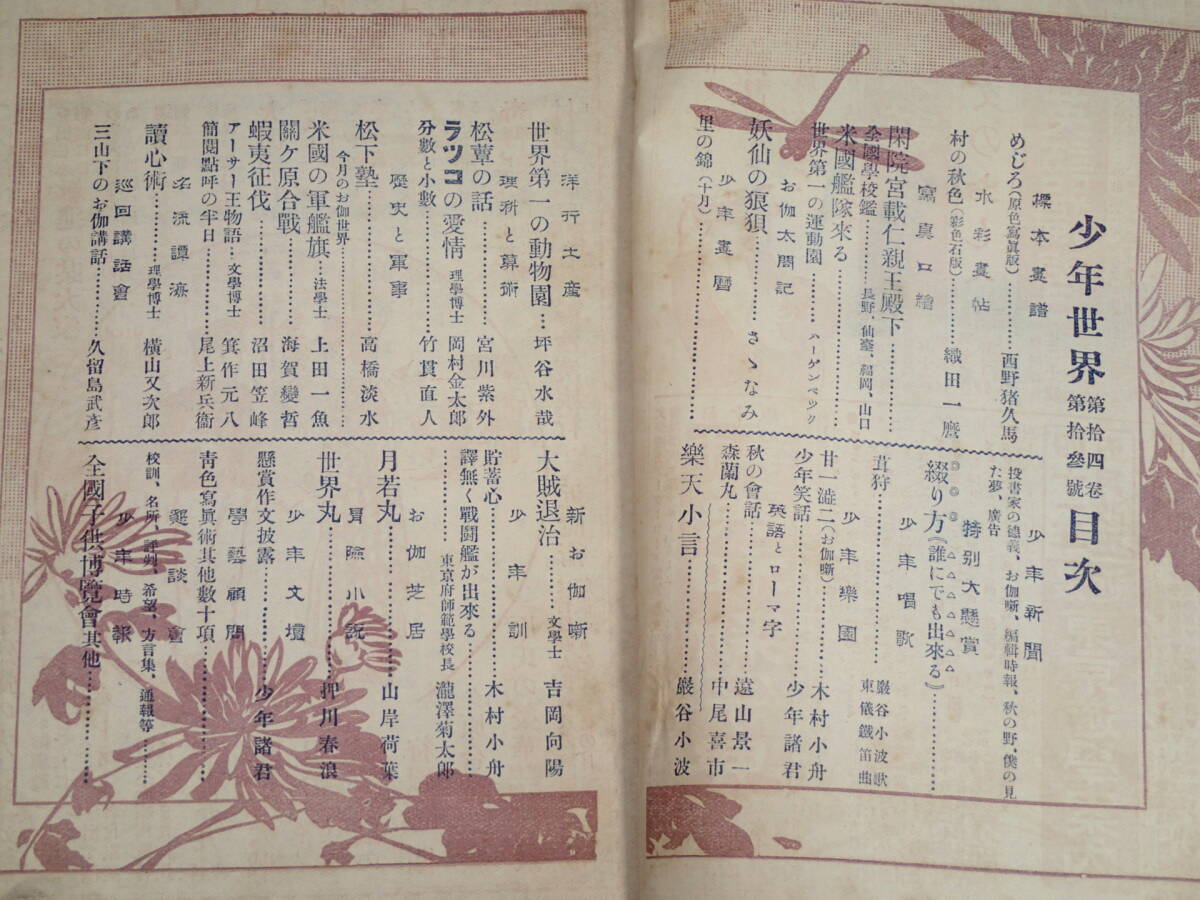 少年世界 第拾四卷 第拾參號 目次
標本畫譜
めじろ(原色寫眞版)………西野猪久馬
水彩畫帖
村の秋色(彩色石版)………織田一麿
寫眞口繪
閑院宮載仁親王殿下………
全國學校鑑………長野、仙臺、福岡、山口
米國艦隊來る………
世界第一の運動園………ハーゲンベック
お伽太閤記
妖仙の狼狽………さゝなみ
少年畫曆
里の錦(十月)………
少年新聞
投書家の德義、お伽噺、編輯時報、秋の野、僕の見
た夢、廣告
特別大懸賞
◎◎◎ △△△△△△
綴り方(誰にでも出來る)………
少年唱歌
茸狩………巖谷小波歌
東儀鐵笛曲
少年樂園
甘一澁二(お伽噺)………木村小舟
少年笑話………少年諸君
英語とローマ字
秋の會話………遠山景一
森蘭丸………中尾喜市
樂天小言………巖谷小波
洋行土產
世界第一の動物園………坪谷水哉
理科と算術
松蕈の話………宮川紫外
ラツコの愛情 理學博士 岡村金太郎
分數と小數………竹貫直人
歷史と軍事
松下塾………高橋淡水
今月のお伽世界………
米國の軍艦旗………法學士 上田一魚
關ケ原合戰………海賀變哲
蝦夷征伐………沼田笠峰
アーサー王物語………文學博士 箕作元八
簡閱點呼の半日………尾上新兵衞
名流譚海
讀心術………理學博士 橫山又次郎
巡回講話會
三山下のお伽講話………久留島武彥
新お伽噺
大賊退治………文學士 吉岡向陽
少年訓
貯蓄心………木村小舟
譯無く戰鬪艦が出來る………東京府師範學校長 瀧澤菊太郎
お伽芝居
月若丸………山岸荷葉
冒險小說
世界丸………押川春浪
少年文壇
懸賞作文披露………少年諸君
學藝顧問
靑色寫眞術其他數十項………
懇談會
校訓、名所、評判、希望、方言集、通報等………
少年時報
全國子供博覽會其他………